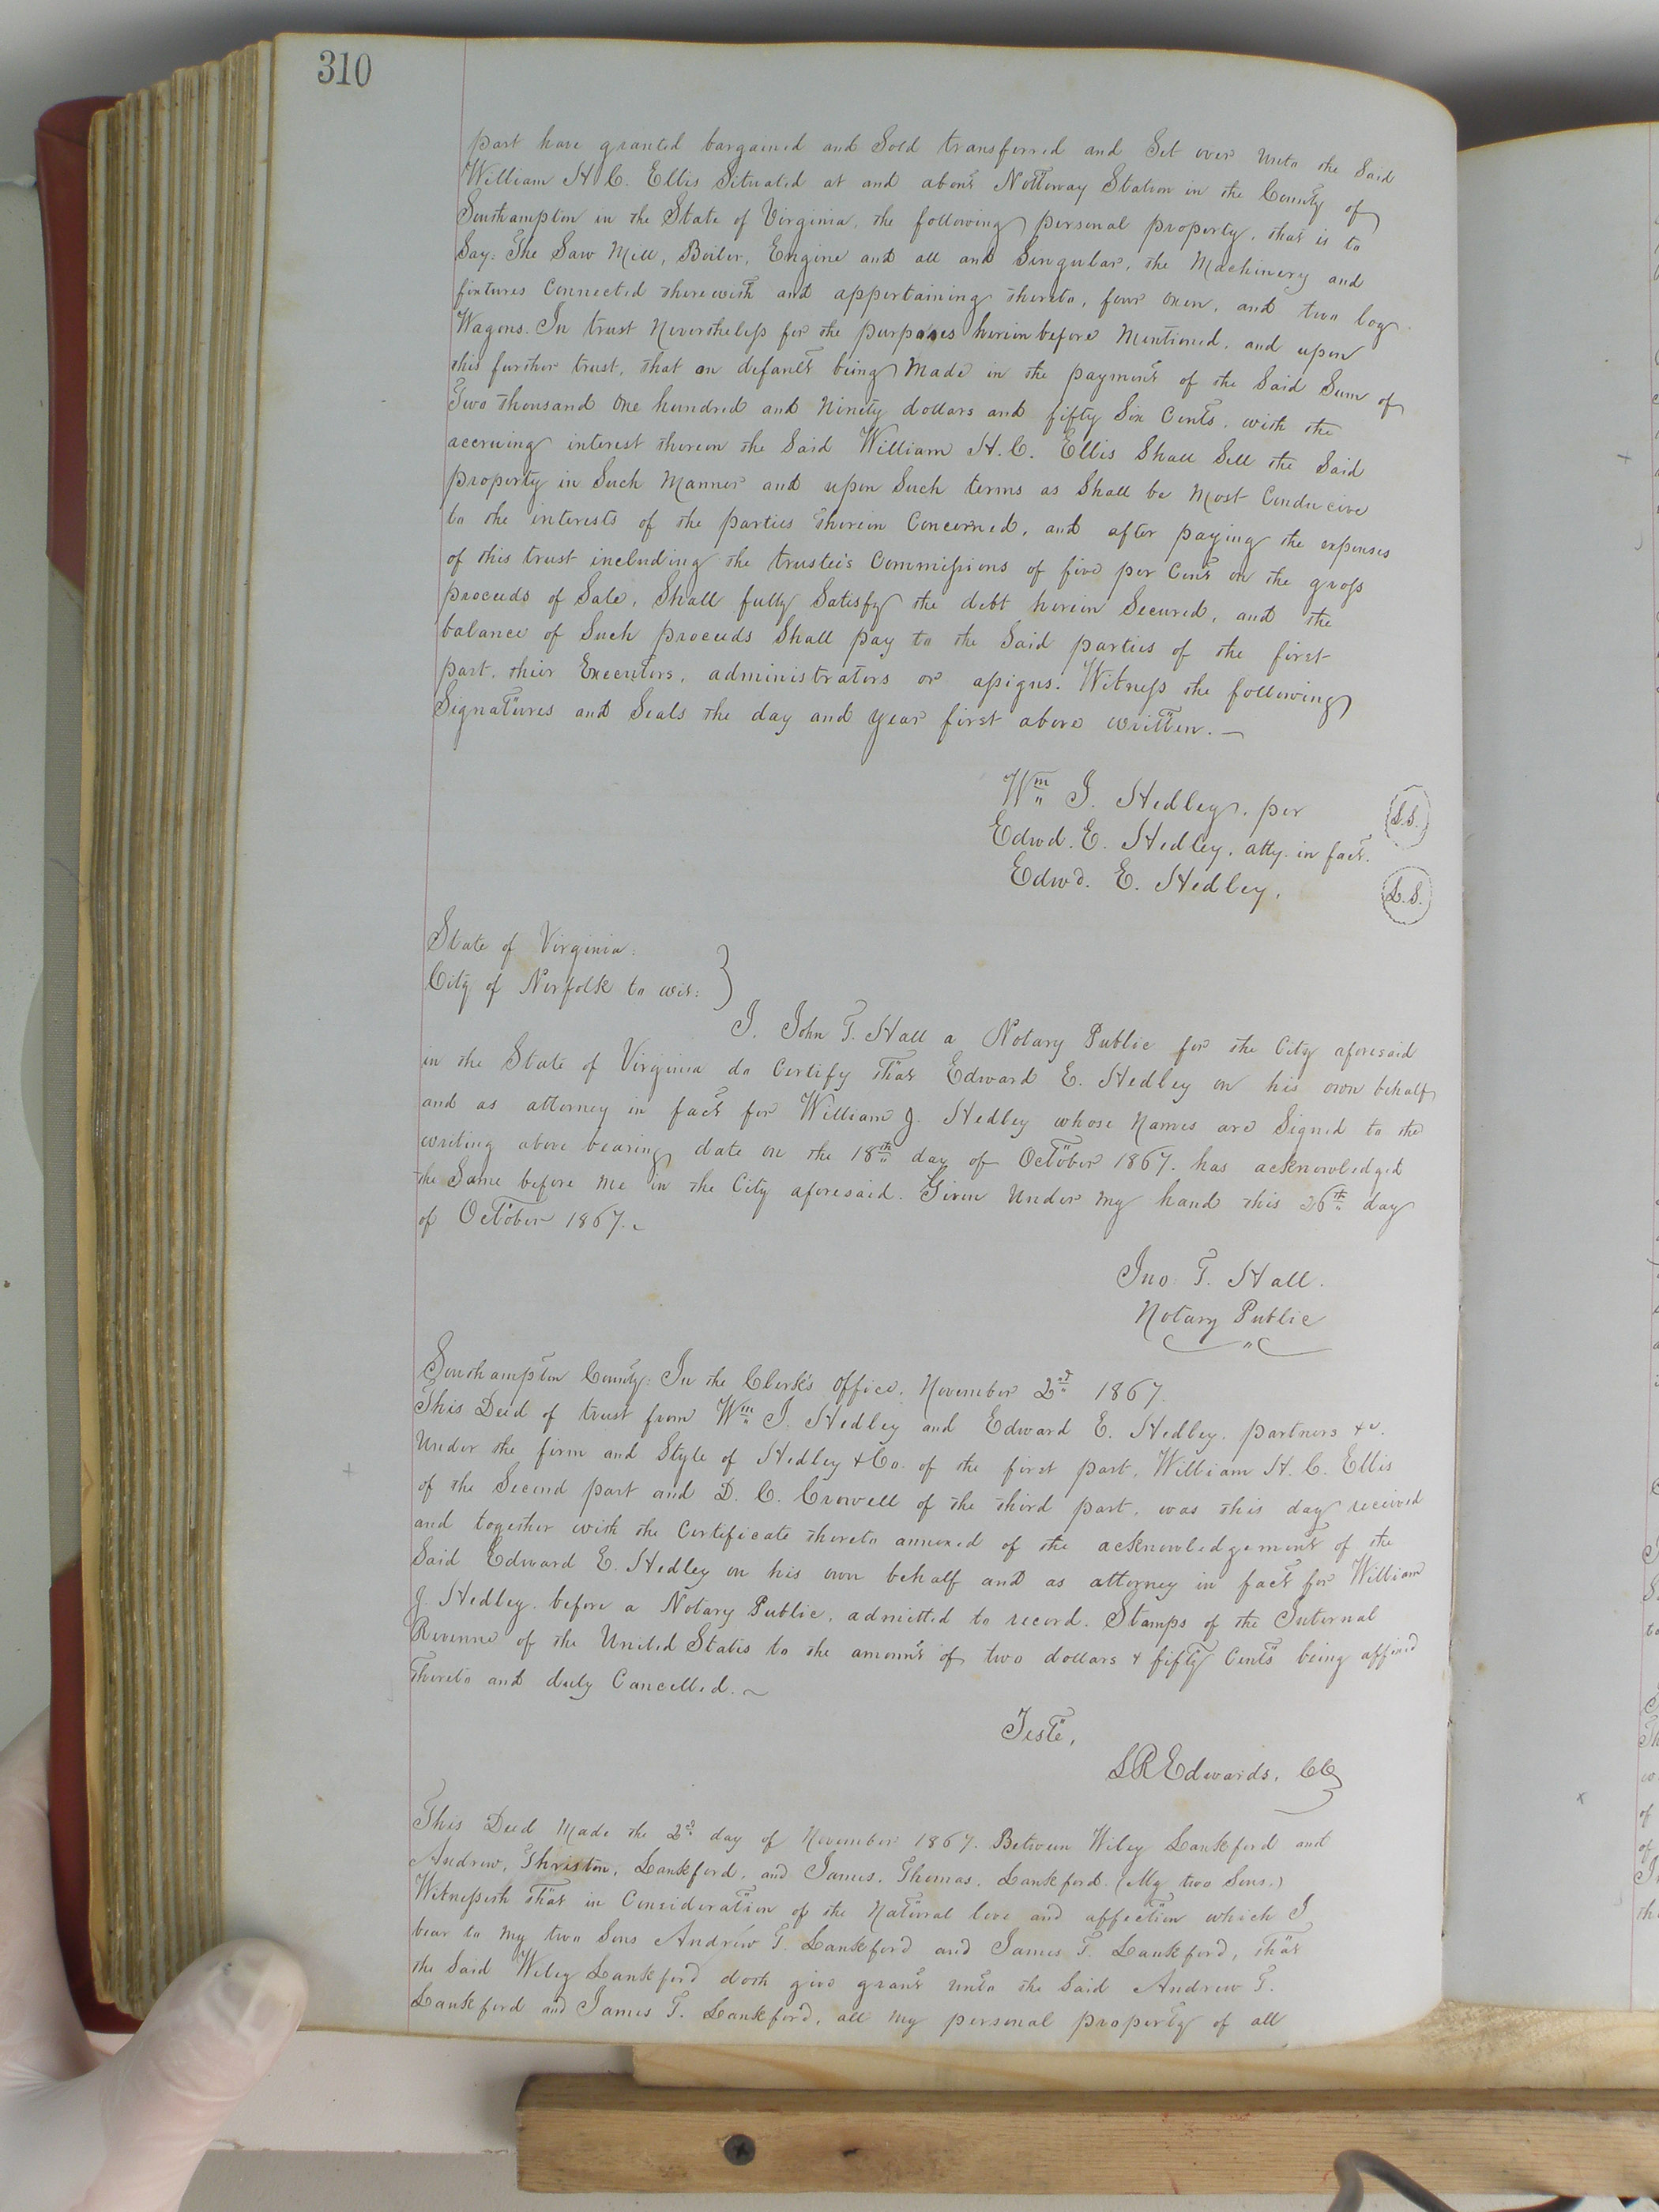 310
part have granted bargained and Sold transferred and Set over Unto the Said
William H. C. Ellis Situated at and about Nottoway Station in the County of
Southampton in the State of Virginia, the following personal property, that is to
Say: The Saw Mill, Boiler, Engine and all and Singular, the Machinery and
fixtures Connected therewith and appertaining thereto, four oxen, and two log
Wagons. In trust Nevertheless for the purposes herein before Mentioned, and upon
this further trust, that on default being Made in the payment of the Said Sum of
Two thousand One hundred and Ninety dollars and fifty Six Cents, with the
accruing interest thereon the Said William H. C. Ellis Shall Sell the Said
property in Such Manner and upon Such terms as Shall be Most Conducive
to the interests of the parties therein Concerned, and after paying the expenses
of this trust including the trustee's Commissions of five per Cent on the gross
proceeds of Sale, Shall fully Satisfy the debt herein Secured, and the
balance of Such proceeds Shall pay to the Said parties of the first
part, their Executors, administrators or assigns. Witness the following
Signatures and Seals the day and year first above written.
Wm J. Hedley, per
L.S.
Edwd. E. Hedley, atty. in fact.
Edwd. E. Hedley,
L.S.
State of Virginia:
City of Norfolk to wit:
I, John T. Hall a Notary Public for the City aforesaid
in the State of Virginia do Certify that Edward E. Hedley on his own behalf
and as attorney in fact for William J. Hedley whose Names are Signed to the
writing above bearing date on the 18th day of October 1867. has acknowledged
the Same before Me in the City aforesaid. Given Under My hand this 26th day
of October 1867.
Jno. T. Hall.
Notary Public
Southampton County: In the Clerk's Office, November 2d 1867.
This Deed of trust from Wm J. Hedley and Edward E. Hedley, partners &c.
Under the firm and Style of Hedley & Co. of the first part, William H. C. Ellis
of the Second part and D. C. Crowell of the third part, was this day received
and together with the Certificate thereto annexed of the acknowledgement of the
Said Edward E. Hedley on his own behalf and as attorney in fact for William
J. Hedley, before a Notary Public, admitted to record. Stamps of the Internal
Revenue of the United States to the amount of two dollars & fifty Cents being affixed
thereto and duly Cancelled.
Teste,
L R Edwards, CC
This Deed Made the 2d day of November 1867. Between Wiley Lankford and
Andrew, Thriston, Lankford, and James, Thomas, Lankford. (My two Sons.)
Witnesseth that in Consideration of the Natural love and affection which I
bear to My two Sons Andrew T. Lankford and James T. Lankford, that
the Said Wiley Lankford doth give grant unto the Said Andrew T.
Lankford and James T. Lankford, all My personal property of all